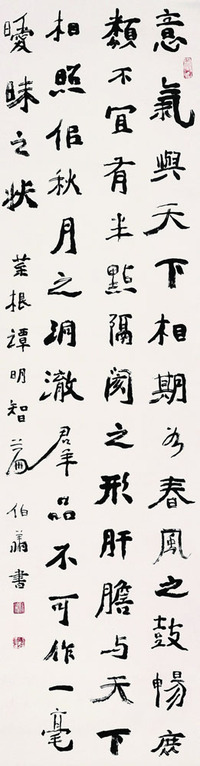 意氣與天下相期如春風之鼓暢庶
類不宜有半點隔閡之形肝膽与天下
相照似秋月之洞澈群品不可作一毫
曖昧之狀
菜根譚明智篇 伯翁書